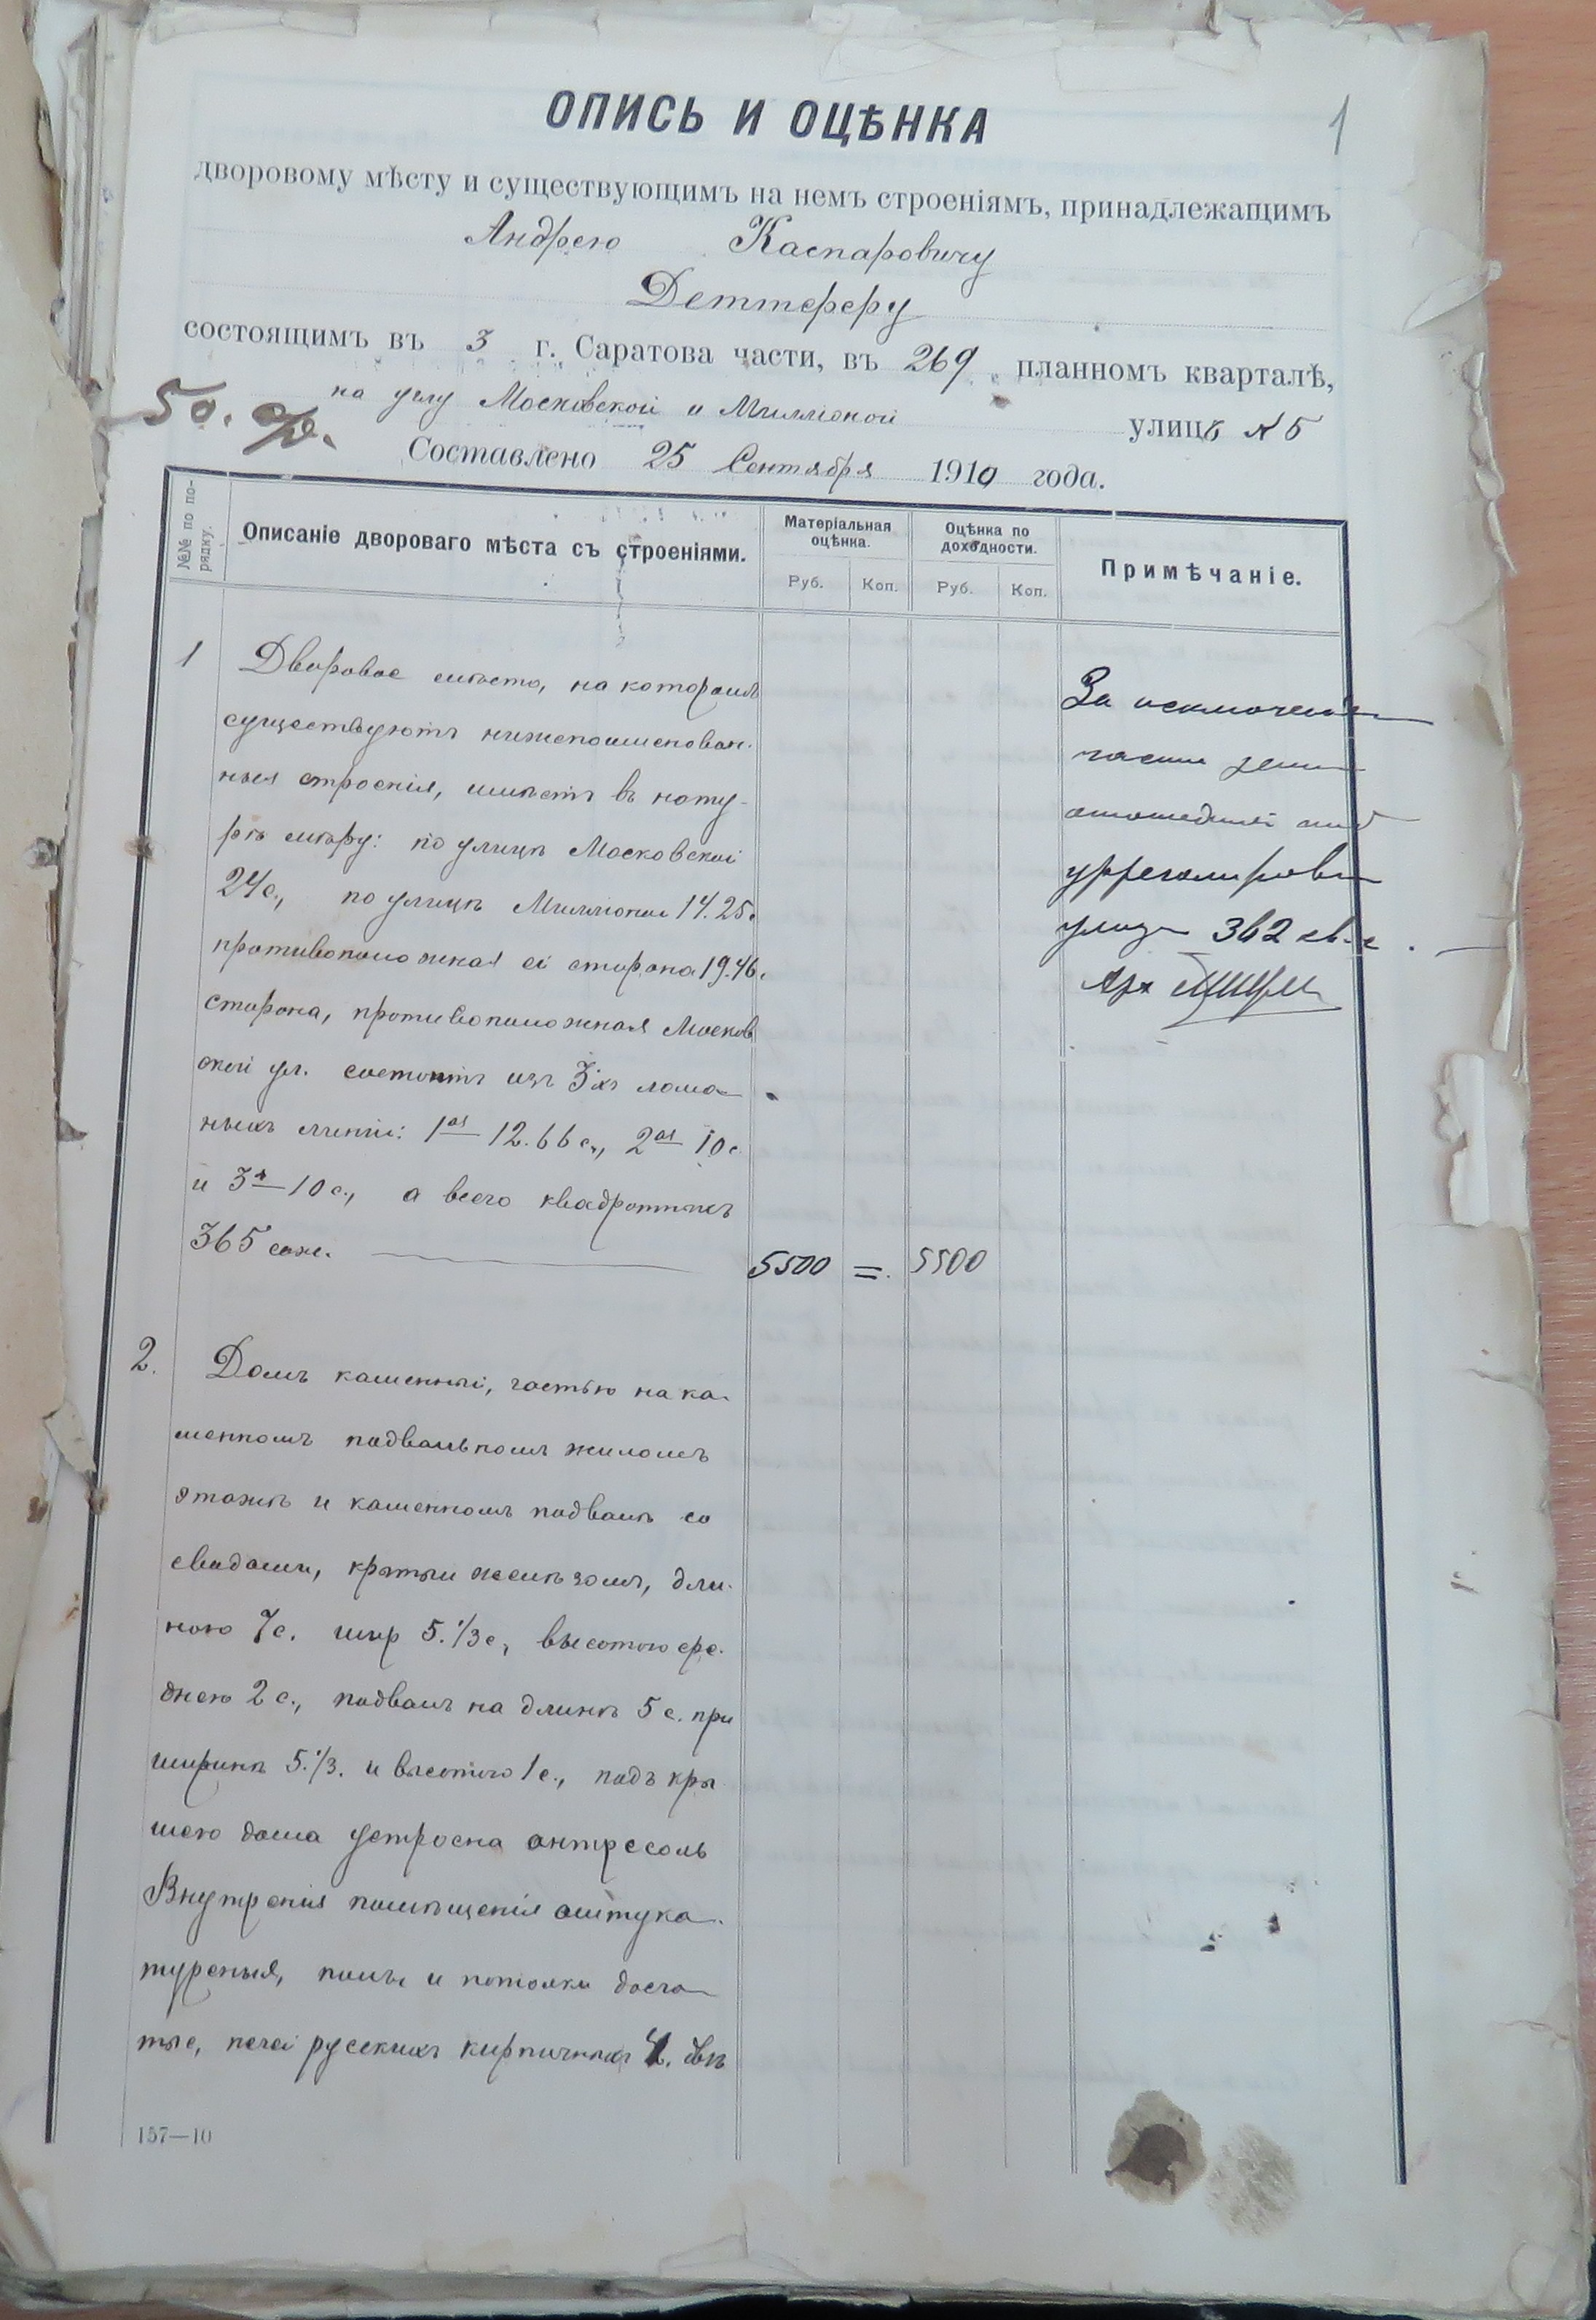 1
ОПИСЬ И ОЦѢНКА
дворовому мѣсту и существующимъ на немъ строеніямъ, принадлежащимъ
Андрею Каспаровичу
Деттереру
состоящимъ въ 3 г. Саратова части, въ 269 планномъ кварталѣ,
на углу Московской и Милліоной улицъ № 5
50.
Составлено 25 Сентября 1910 года.
№№ по порядку.
Описаніе двороваго мѣста съ строеніями.
Матеріальная оцѣнка.
Оцѣнка по доходности.
Примѣчаніе.
Руб. Коп. Руб. Коп.
1 Дворовое мѣсто, на которомъ
существуютъ нижепоименован-
ныя строенія, имѣетъ въ нату-
рѣ мѣру: по улицѣ Московской
24 с., по улицѣ Милліоной 14.25с
противоположная ей сторона 19.46.
сторона, противоположная Москов
ской ул. состоитъ изъ 3хъ лома-
ныхъ линій: 1ая 12.66 с., 2ая 10 с
и 3я 10 с., а всего квадратныхъ
365 саж. 5500 = 5500
За исключеніем
части земли
отошедшей под
урегулировку
улицы 362 кв. с.
Арх
2. Домъ каменный, частью на ка-
менномъ подвальномъ жиломъ
этажѣ и каменномъ подвалѣ со
сводами, крытый желѣзомъ, дли-
ною 7с. шир 5.1/3с, высотою сре-
днею 2 с., подвалъ на длинѣ 5 с. при
ширинѣ 5.1/3. и высотою 1 с., подъ кры
шею дома устроена антресоль
Внутренія помѣщенія оштука-
туреныя, полы и потолки доща-
тые, печей русскихъ кирпичныхъ двѣ
157—10